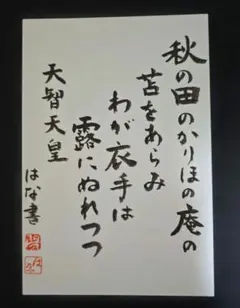 秋の田のかりほの庵の
苫をあらみ
わが衣手は
露にぬれつつ
天智天皇
はな書